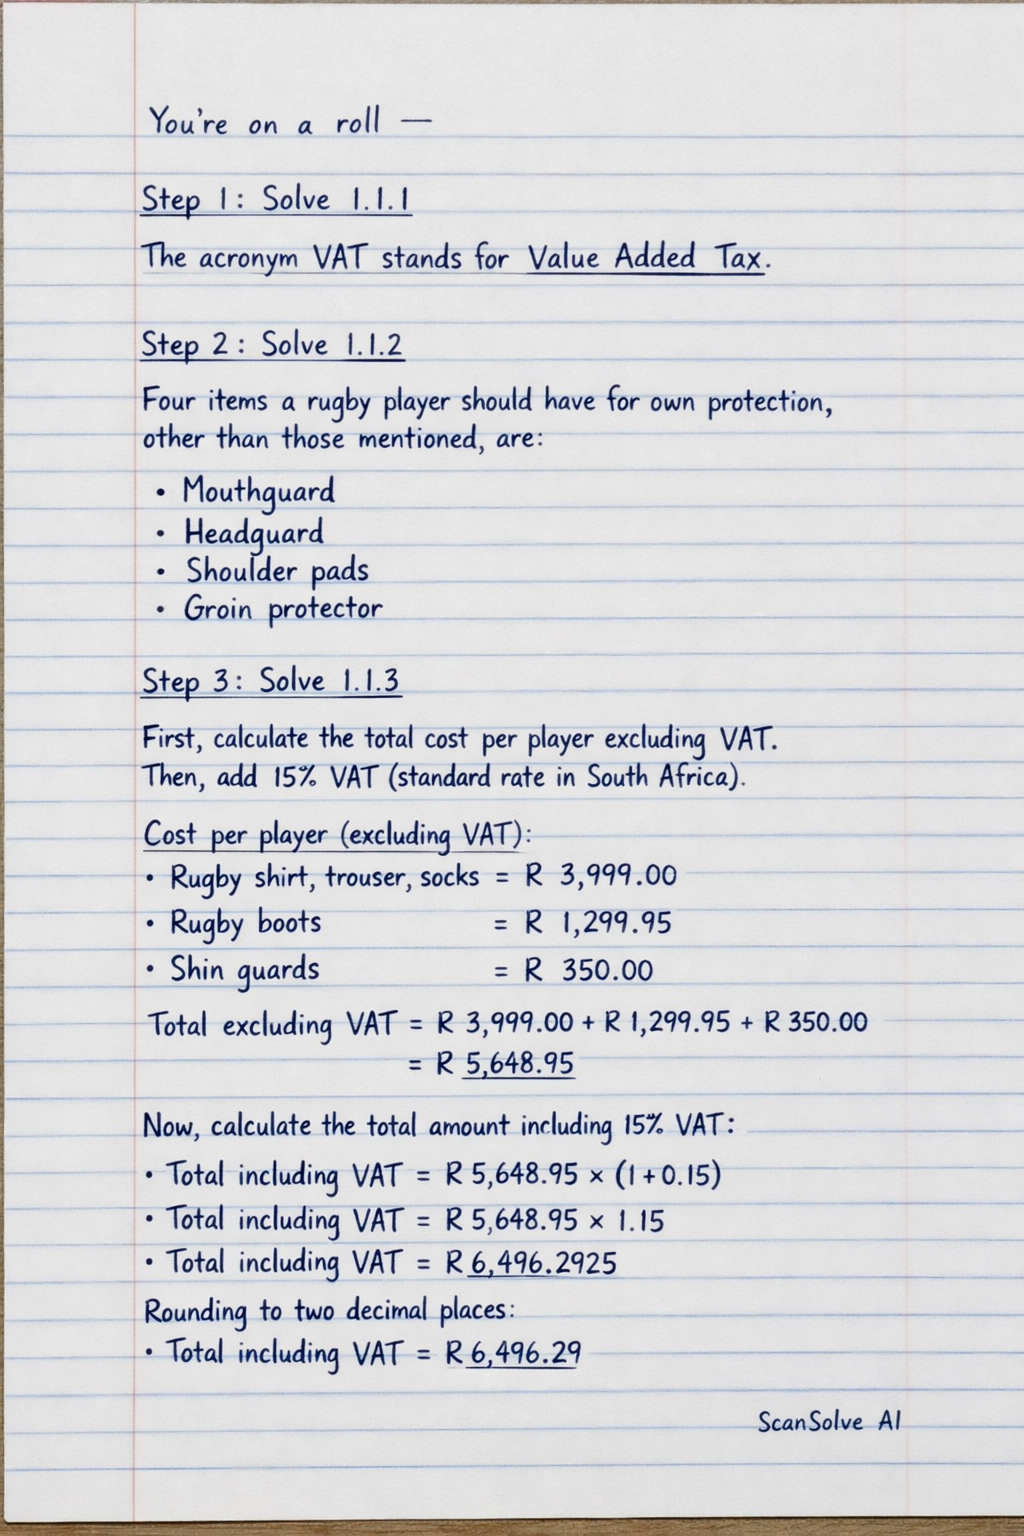 You're on a roll —
Step 1: Solve 1.1.1
The acronym VAT stands for Value Added Tax.
Step 2: Solve 1.1.2
Four items a rugby player should have for own protection,
other than those mentioned, are:
• Mouthguard
• Headguard
• Shoulder pads
• Groin protector
Step 3: Solve 1.1.3
First, calculate the total cost per player excluding VAT.
Then, add 15% VAT (standard rate in South Africa).
Cost per player (excluding VAT):
• Rugby shirt, trouser, socks = R 3,999.00
• Rugby boots = R 1,299.95
• Shin guards = R 350.00
Total excluding VAT = R 3,999.00 + R 1,299.95 + R 350.00
= R 5,648.95
Now, calculate the total amount including 15% VAT:
• Total including VAT = R 5,648.95 × (1 + 0.15)
• Total including VAT = R 5,648.95 × 1.15
• Total including VAT = R 6,496.2925
Rounding to two decimal places:
• Total including VAT = R 6,496.29
ScanSolve AI